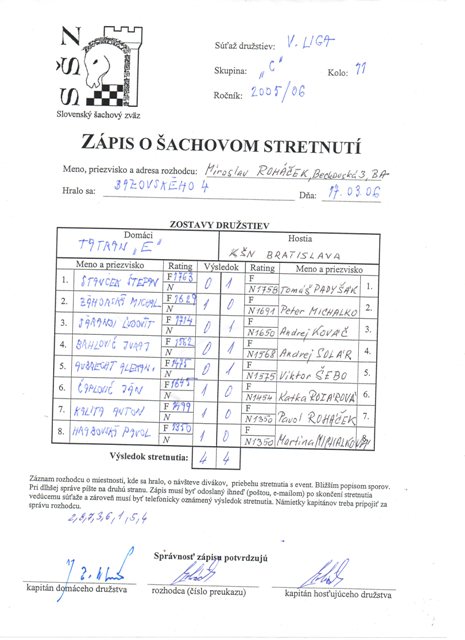 SŠZ
Slovenský šachový zväz
Súťaž družstiev: V. LIGA
Skupina: „C" Kolo: 11
Ročník: 2005/06
ZÁPIS O ŠACHOVOM STRETNUTÍ
Meno, priezvisko a adresa rozhodcu: Miroslav ROHÁČEK, 3, BA
Hralo sa: 4 Dňa: 17.03.06
ZOSTAVY DRUŽSTIEV
Domáci Hostia
TATRAN „E" KŠN BRATISLAVA
Meno a priezvisko Rating Výsledok Rating Meno a priezvisko
1. F 1763 N 0 1 F N1755 Tomáš 1.
2. F 1629 N 1 0 F N1691 Peter MICHALKO 2.
3. F 1714 N 0 1 F N1650 Andrej KOVÁČ 3.
4. F 1562 N 0 1 F N1568 Andrej SOLÁR 4.
5. F N 0 1 F N1575 Viktor ŠEBO 5.
6. JÁN F N 1 0 F N1454 Katka 6.
7. ANTON F N 1 0 F N1350 Pavol ROHÁČEK 7.
8. PAVOL F N 1 0 F N1350 Martina
Výsledok stretnutia: 4 4
Záznam rozhodcu o miestnosti, kde sa hralo, o návšteve divákov, priebehu stretnutia s event. Bližším popisom sporov.
Pri dlhšej správe píšte na druhú stranu. Zápis musí byť odoslaný ihneď (poštou, e-mailom) po skončení stretnutia
vedúcemu súťaže a zároveň musí byť telefonicky oznámený výsledok stretnutia. Námietky kapitánov treba pripojiť za
správu rozhodcu.
2,8,7,3,6,1,5,4
Správnosť zápisu potvrdzujú
kapitán domáceho družstva rozhodca (číslo preukazu) kapitán hosťujúceho družstva